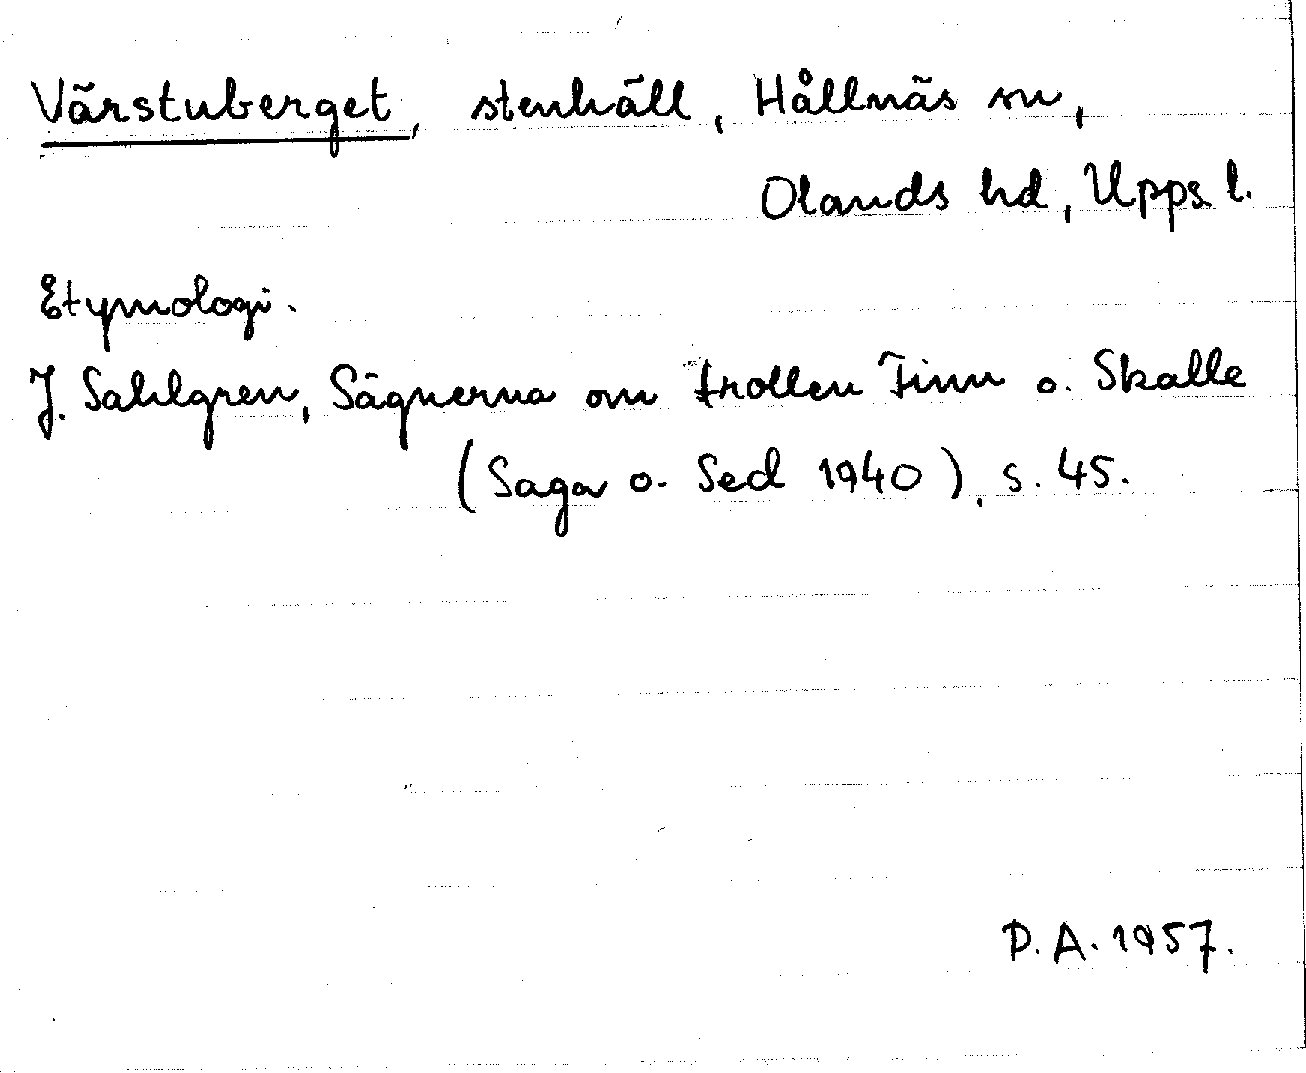 Värstuberget, stenhäll, Hållnäs sn,
Olands hd, Upps. l.
Etymologi.
J. Sahlgren, Sägnerna om trollen Finn o. Skalle
(Saga o. Sed 1940), s. 45.
D. A. 1957.